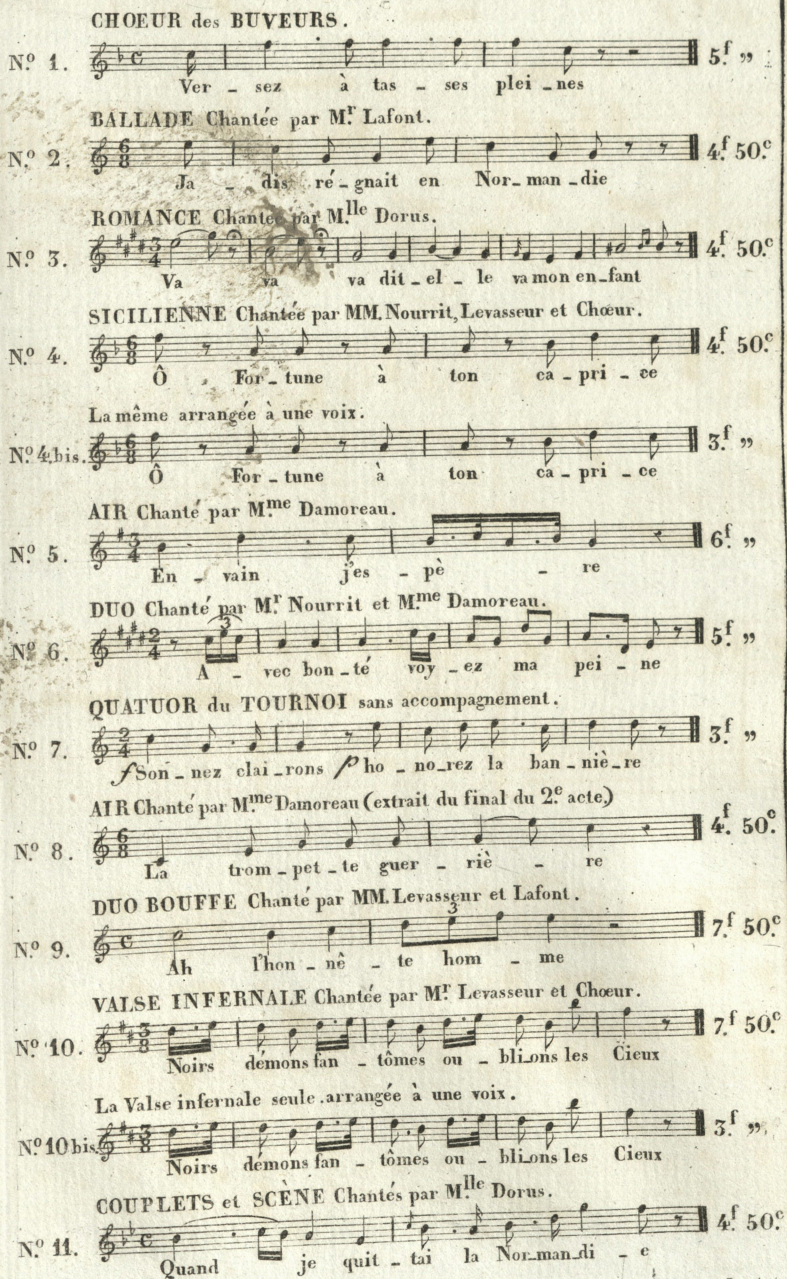 CHOEUR des BUVEURS.
N.º 1. 5.f „
Ver - sez à tas - ses plei - nes
BALLADE Chantée par M.r Lafont.
N.º 2. 4.f 50.c
Ja - dis ré - gnait en Nor - man - die
ROMANCE Chantée par M.lle Dorus.
N.º 3. 4.f 50.c
Va va va dit - el - le va mon en - fant
SICILIENNE Chantée par MM. Nourrit, Levasseur et Chœur.
N.º 4. 4.f 50.c
Ô For - tune à ton ca - pri - ce
La même arrangée à une voix.
N.º 4. bis. 3.f „
Ô For - tune à ton ca - pri - ce
AIR Chanté par M.me Damoreau.
N.º 5. 6.f „
En - vain j'es - pè - re
DUO Chanté par M.r Nourrit et M.me Damoreau.
3
N.º 6. 5.f „
A - vec bon - té voy - ez ma pei - ne
QUATUOR du TOURNOI sans accompagnement.
N.º 7. 3.f „
f Son - nez clai - rons p ho - no - rez la ban - niè - re
AIR Chanté par M.me Damoreau (extrait du final du 2.e acte)
N.º 8. 4.f 50.c
La trom - pet - te guer - riè - re
DUO BOUFFE Chanté par MM. Levasseur et Lafont.
3
N.º 9. 7.f 50.c
Ah l'hon - nê - te hom - me
VALSE INFERNALE Chantée par M.r Levasseur et Chœur.
N.º 10. 7.f 50.c
Noirs démons fan - tômes ou - bli - ons les Cieux
La Valse infernale seule. arrangée à une voix.
N.º 10 bis. 3.f „
Noirs démons fan - tômes ou - bli - ons les Cieux
COUPLETS et SCÈNE Chantés par M.lle Dorus.
N.º 11. 4.f 50.c
Quand je quit - tai la Nor - man - di - e